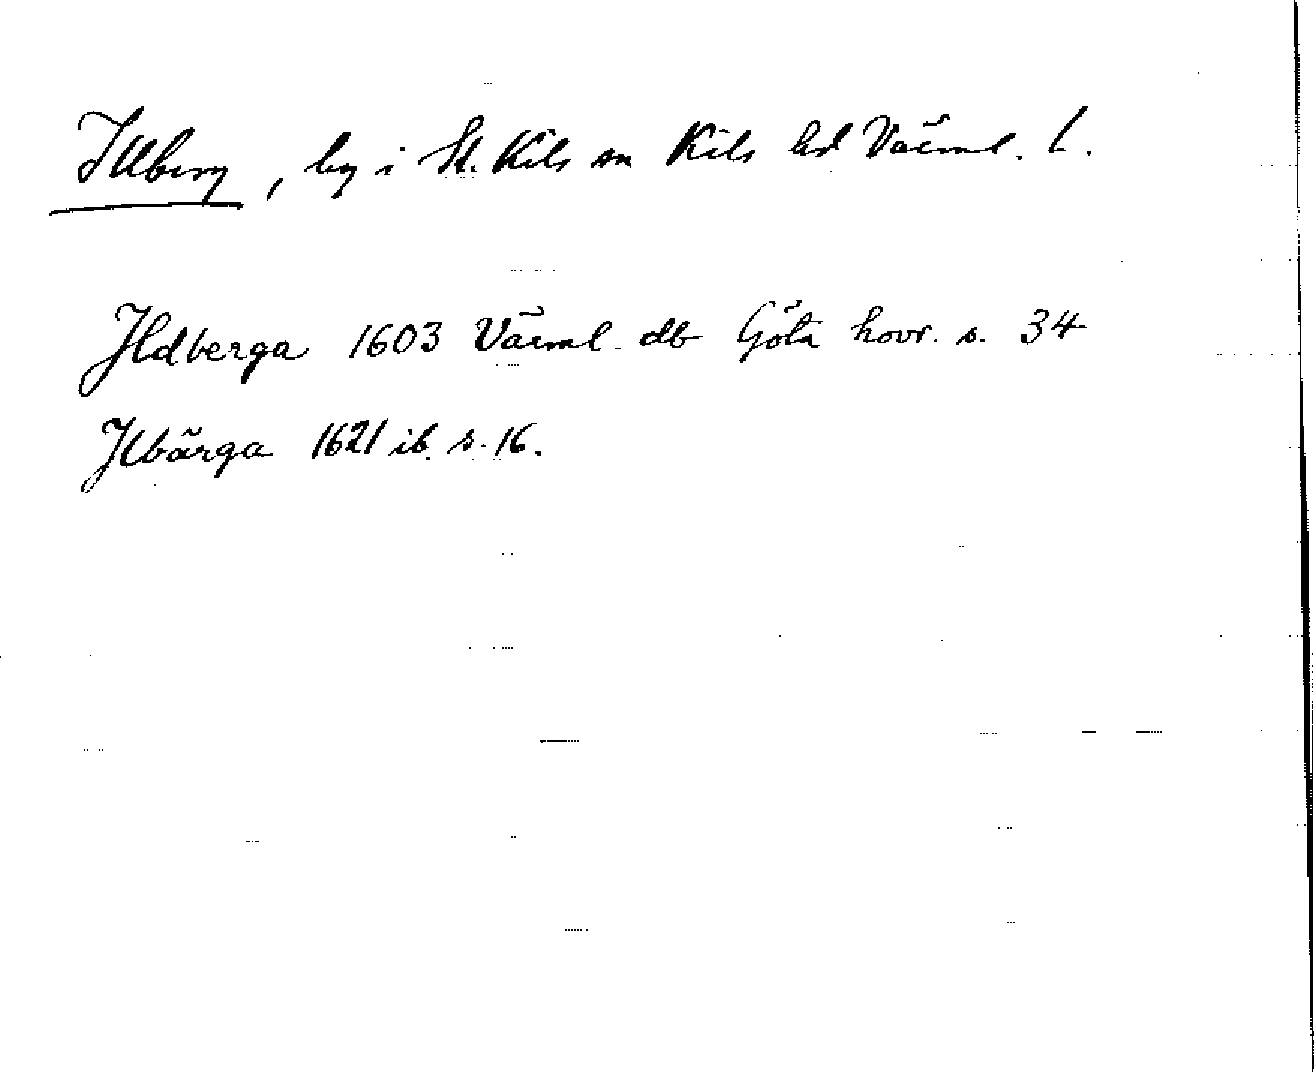 Illberg, by i St. Kils sn Kils hd Värml. l.
Ildberga 1603 Värml. db Göta hovr. s. 34
Ilbärga 1621 ib. s. 16.